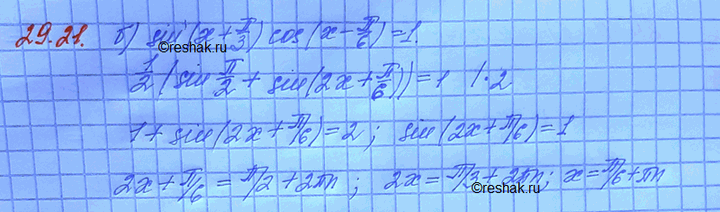 29.21. б) sin(x+π/3) cos(x-π/6)=1.
©reshak.ru
1/2(sin π/2 + sin(2x+π/6))=1 |·2
1+sin(2x+π/6)=2; sin(2x+π/6)=1
2x+π/6=π/2+2πn; 2x=π/3+2πn; x=π/6+πn
©reshak.ru